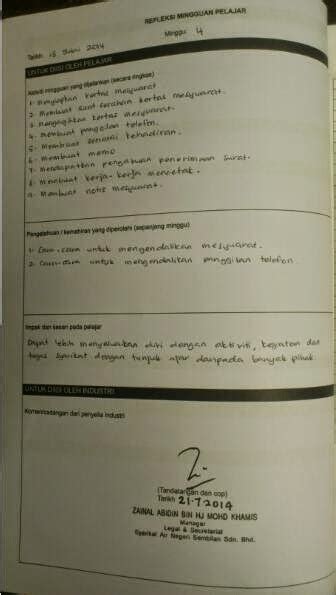 REFLEKSI MINGGUAN PELAJAR
Minggu 4
Tarikh 18 2014
UNTUK DIISI OLEH PELAJAR
Aktiviti mingguan yang dijalankan (secara ringkas)
1- Menyiapkan kertas mesyuarat
2. Membuat surat kertas mesyuarat.
3. kertas mesyuarat.
4. Membuat panggilan telefon.
5- Membuat senarai kehadiran.
6- Membuat memo
7- Mendapatkan pengesahan penerimaan surat.
8- Membuat kerja-kerja mencetak.
9- Membuat notis mesyuarat.
Pengetahuan / kemahiran yang diperolehi (sepanjang minggu)
1- Cara-cara untuk mengendalikan mesyuarat.
2- Cara-cara untuk mengendalikan panggilan telefon
Impak dan kesan pada pelajar
Dapat lebih menyesuaikan diri dengan aktiviti, kegiatan dan
tugas syarikat dengan tunjuk ajar daripada banyak pihak.
UNTUK DIISI OLEH INDUSTRI
Komen/cadangan dari penyelia industri
(Tandatangan dan cop)
Tarikh 21.7.2014
ZAINAL ABIDIN BIN HJ MOHD KHAMIS
Manager
Legal & Secretarial
Syarikat Air Negeri Sembilan Sdn. Bhd.